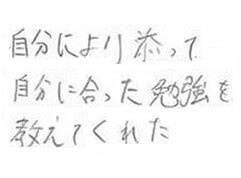 自分により添って
自分に合った勉強を
教えてくれた